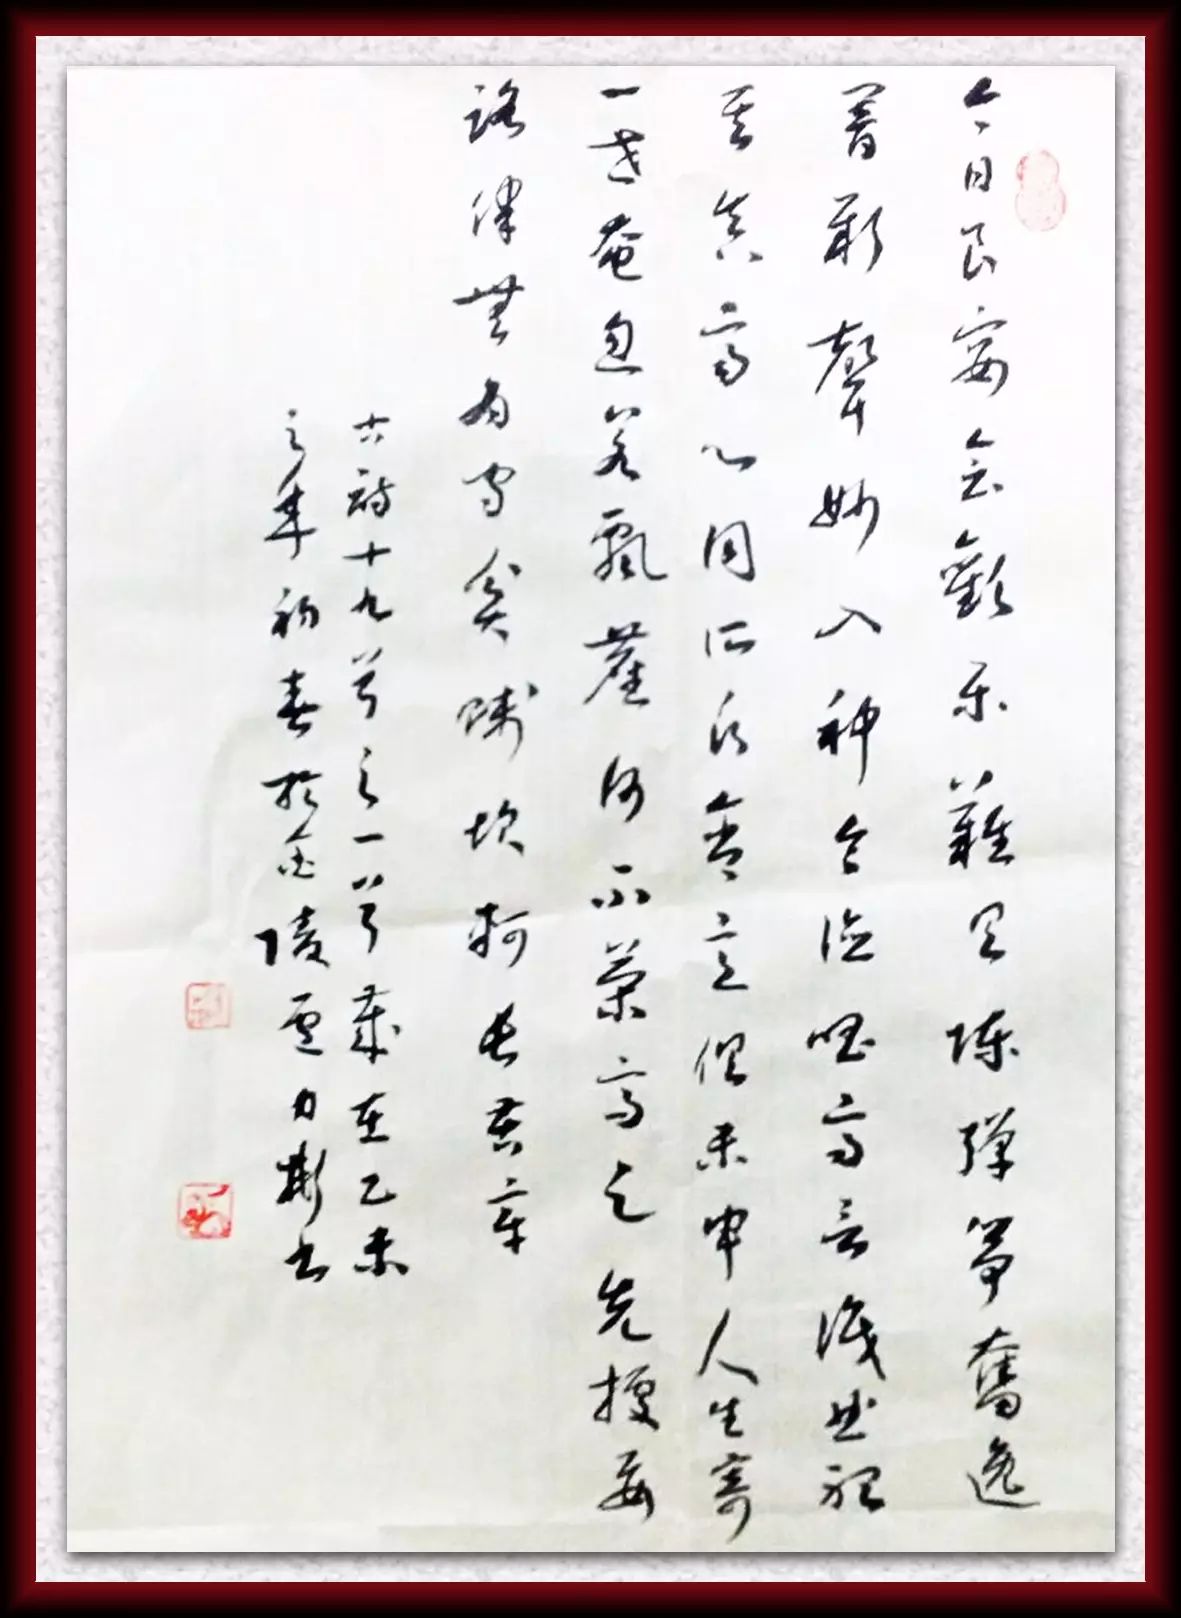 今日良宴會歡樂難具陳彈箏奮逸
響新聲妙入神令德唱高言識曲聽
其真齊心同所願含意俱未申人生寄
一世奄忽若飄塵何不策高足先據要
路津無為守窮賤坎軻長苦辛
古詩十九首之一首歲在乙未
之年初春於金陵力彬書